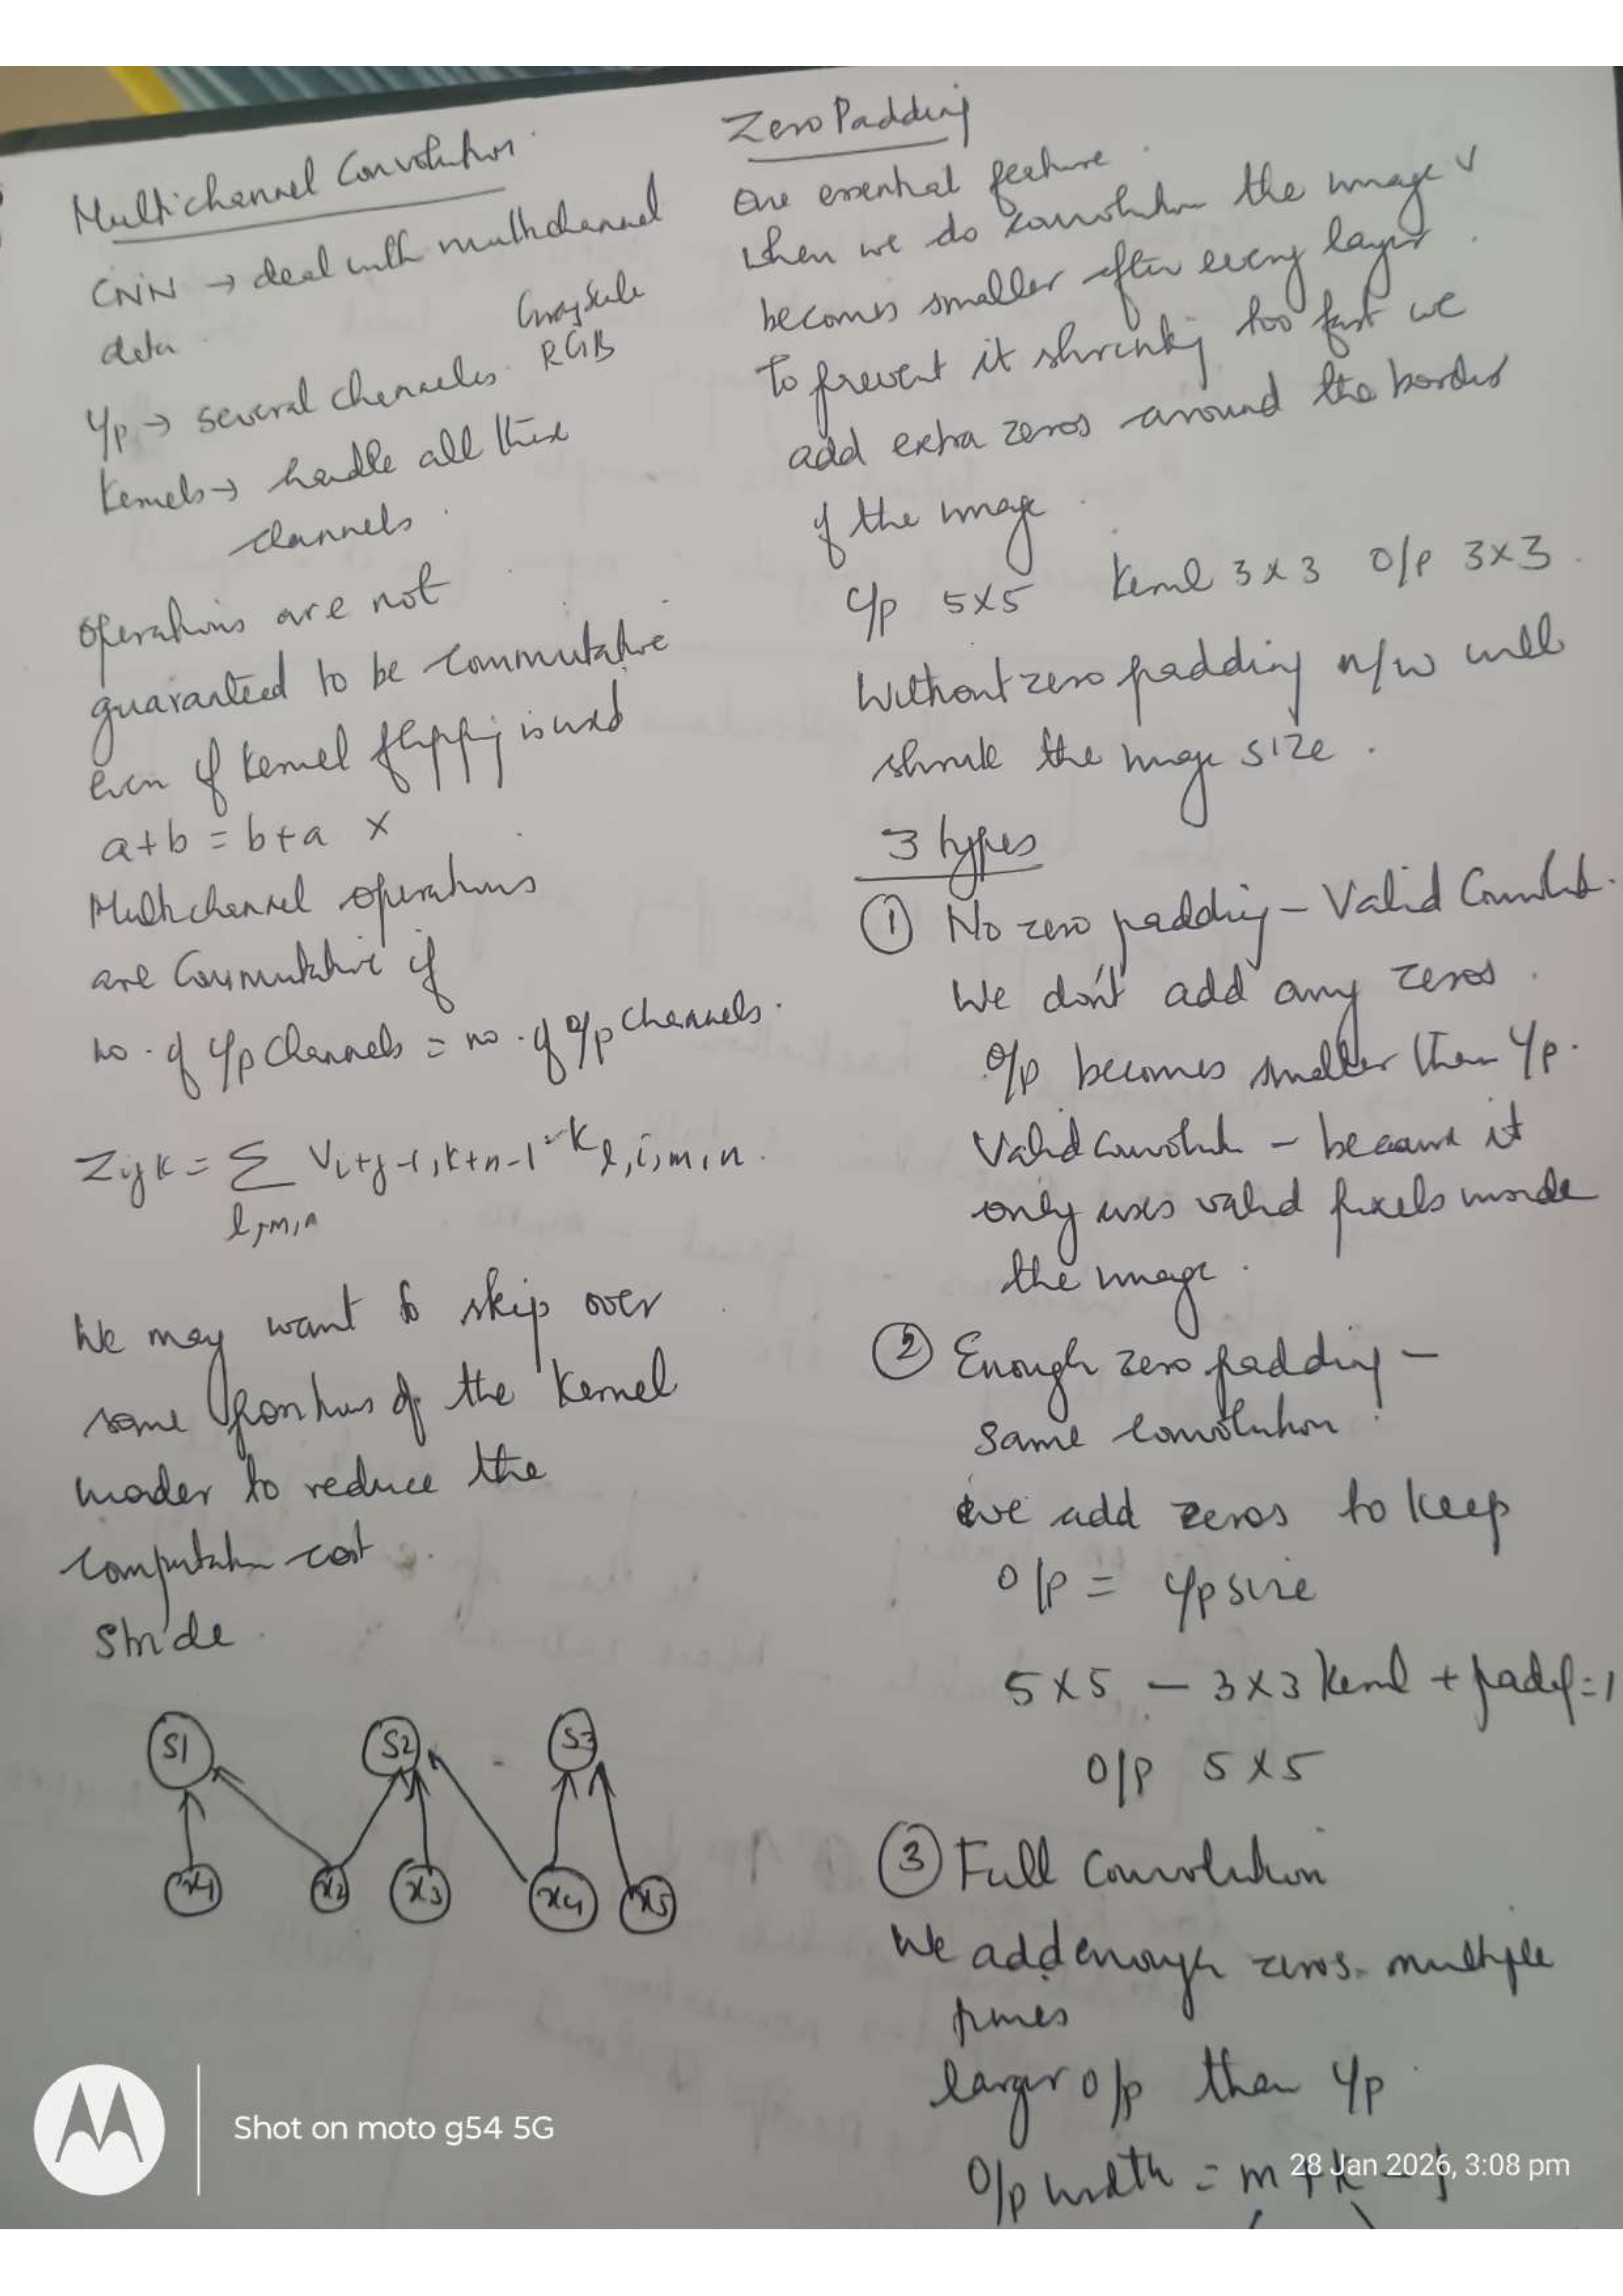 Multichannel Convolution
CNN → deal with multichannel
data
Grayscale
RGB
I/p → several channels.
Kernels → handle all these
channels.
Operations are not
guaranteed to be commutative
even if kernel flipping is used
a+b = b+a ×
Multichannel operations
are commutative if
no. of I/p channels = no. of o/p channels.
Zijk = Σ Vi+j-1,k+n-1 Kl,i,m,n.
l,m,n
We may want to skip over
some portions of the kernel
inorder to reduce the
computation cost.
Stride.
S1 S2 S3
x1 x2 x3 x4 x5
Zero Padding
One essential feature.
When we do convolution the image
becomes smaller after every layer.
To prevent it shrinking too fast we
add extra zeros around the border
of the image.
I/p 5×5 Kernel 3×3 O/p 3×3.
Without zero padding n/w will
shrink the image size.
3 types
① No zero padding – Valid Convolut.
We don't add any zeros.
O/p becomes smaller than I/p.
Valid convolut – because it
only uses valid pixels inside
the image.
② Enough zero padding –
same convolution.
We add zeros to keep
O/p = I/p size
5×5 – 3×3 kernel + padd=1
O/p 5×5
③ Full Convolution
We add enough zeros multiple
times
larger o/p than I/p
O/p width = m+k-1
Shot on moto g54 5G
28 Jan 2026, 3:08 pm